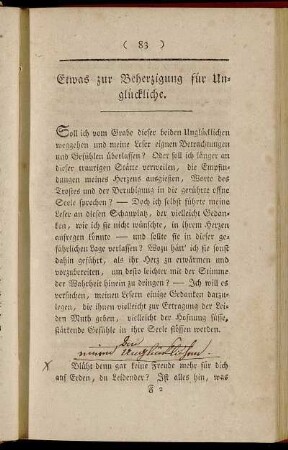 ( 83 )
Etwas zur Beherzigung für Un-
glückliche.
Soll ich vom Grabe dieser beiden Unglücklichen
weggehen und meine Leser eignen Betrachtungen
und Gefühlen überlassen? Oder soll ich länger an
dieser traurigen Stätte verweilen, die Empfin-
dungen meines Herzens ausgießen, Worte des
Trostes und der Beruhigung in die gerührte offne
Seele sprechen? — Doch ich selbst führte meine
Leser an diesen Schauplatz, der vielleicht Gedan-
ken, wie ich sie nicht wünschte, in ihrem Herzen
anfregen konnte — und sollte sie in dieser ge-
fährlichen Lage verlassen? Wozu hatt' ich sie sonst
dahin geführt, als ihr Herz zu erwärmen und
vorzubereiten, um desto leichter mit der Stimme
der Wahrheit hinein zu dringen? — Ich will es
versuchen, meinen Lesern einige Gedanken darzu-
legen, die ihnen vielleicht zur Ertragung der Lei-
den Muth geben, vielleicht der Hofnung süsse,
stärkende Gefühle in ihre Seele flößen werden.
× Blüht denn gar keine Freude mehr für dich
auf Erden, du Leidender? Ist alles hin, was